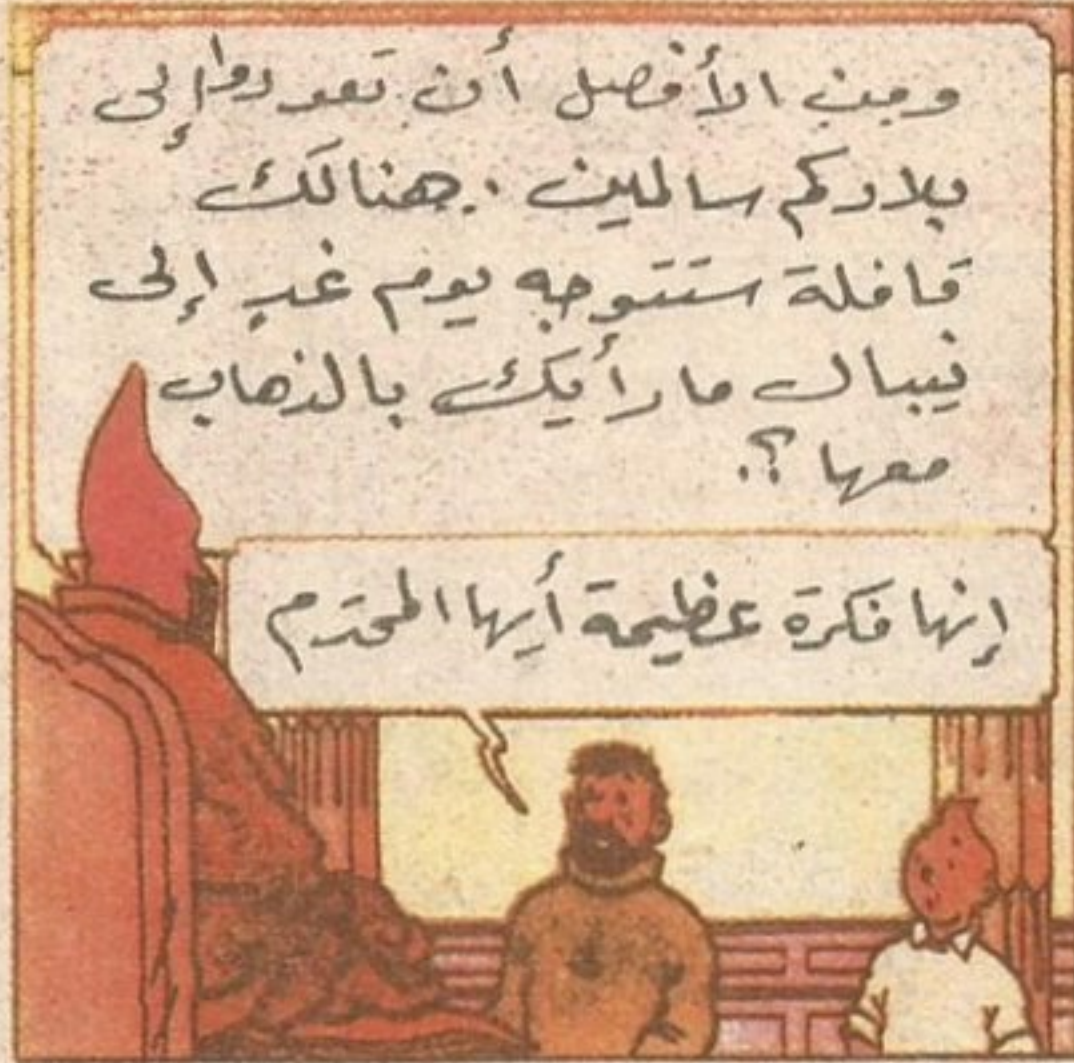 ومن الأفضل أن تعودوا إلى
بلادكم سالمين . هنالك
قافلة ستتوجه يوم غدٍ إلى
نيبال ما رأيك بالذهاب
معها ؟.
إنها فكرة عظيمة أيها المحترم